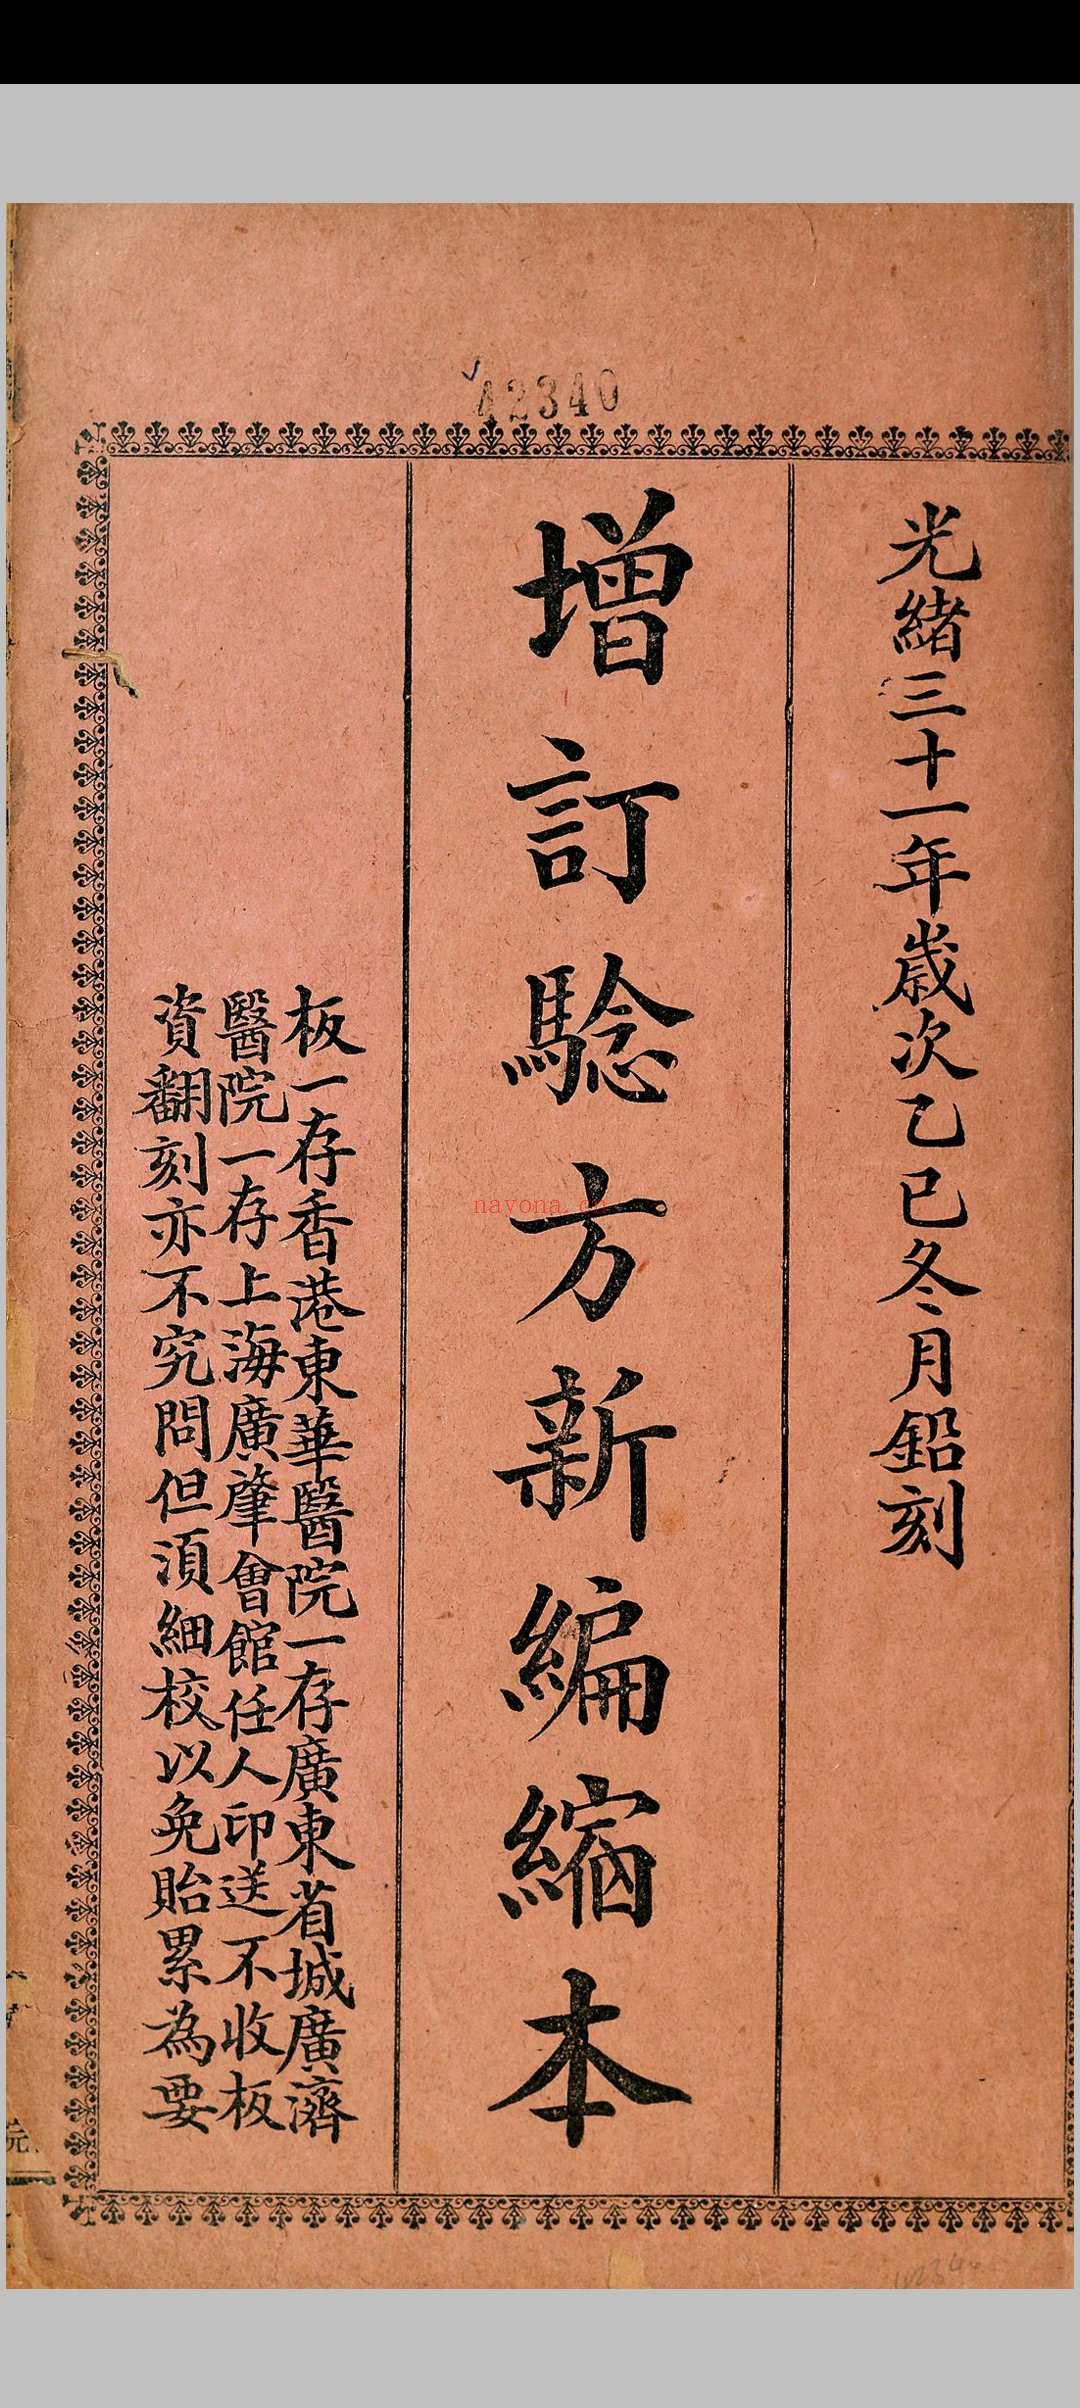 42340
光緒三十一年歲次乙巳冬月鉛刻
增訂騐方新編縮本
板一存香港東華醫院一存廣東省城廣濟
醫院一存上海廣肇會館任人印送不收板
資翻刻亦不究問但須細校以免貽累為要
nayona.cn
元